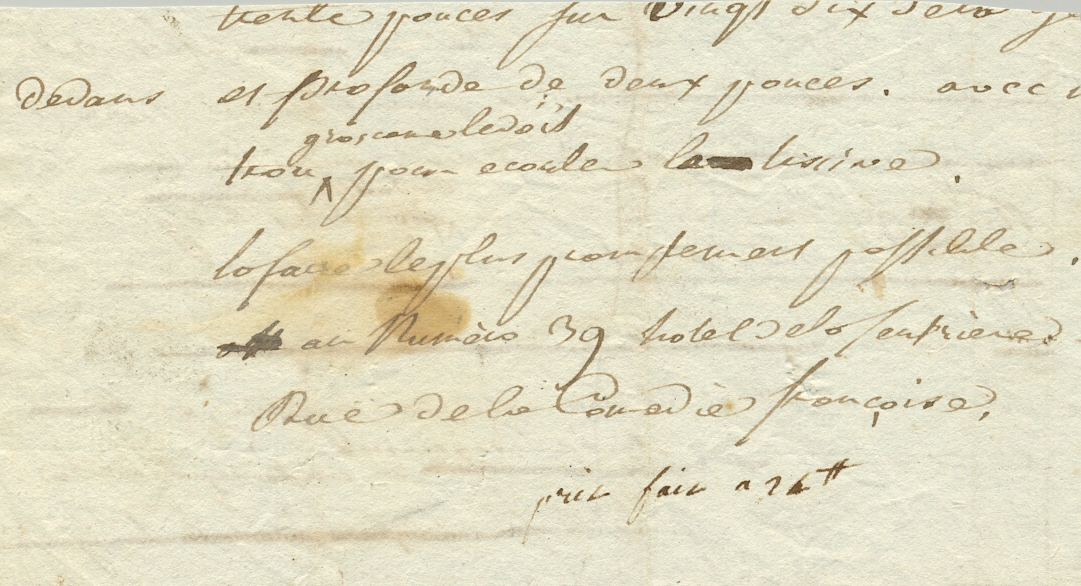 trente pouces sur vingt six
dedans et profonde de deux pouces. avec
gros comme le doit
trou ^ pour ecouler la lissive.
la faire le plus promptement possible.
au Numèro 39 hotel de la
Rue de la Comedie françoise,
prix fait a 26 tt